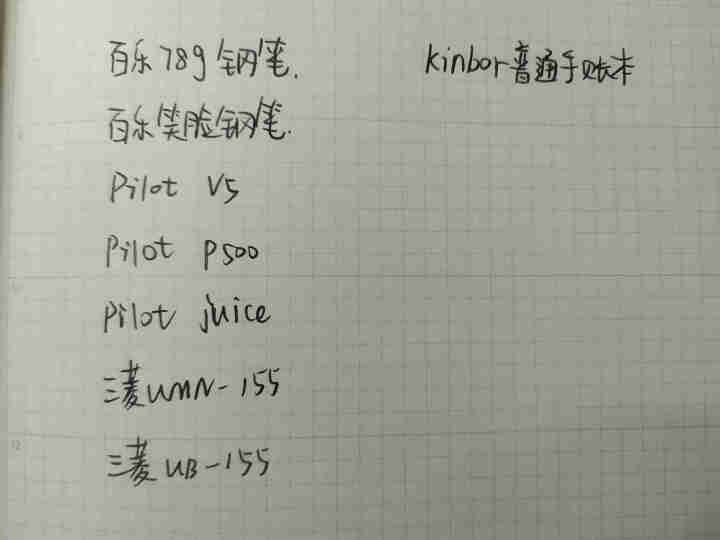 百乐78g钢笔.
kinbor普通手账本
百乐笑脸钢笔.
Pilot V5
Pilot P500
Pilot juice
三菱UMN-155
三菱UB-155